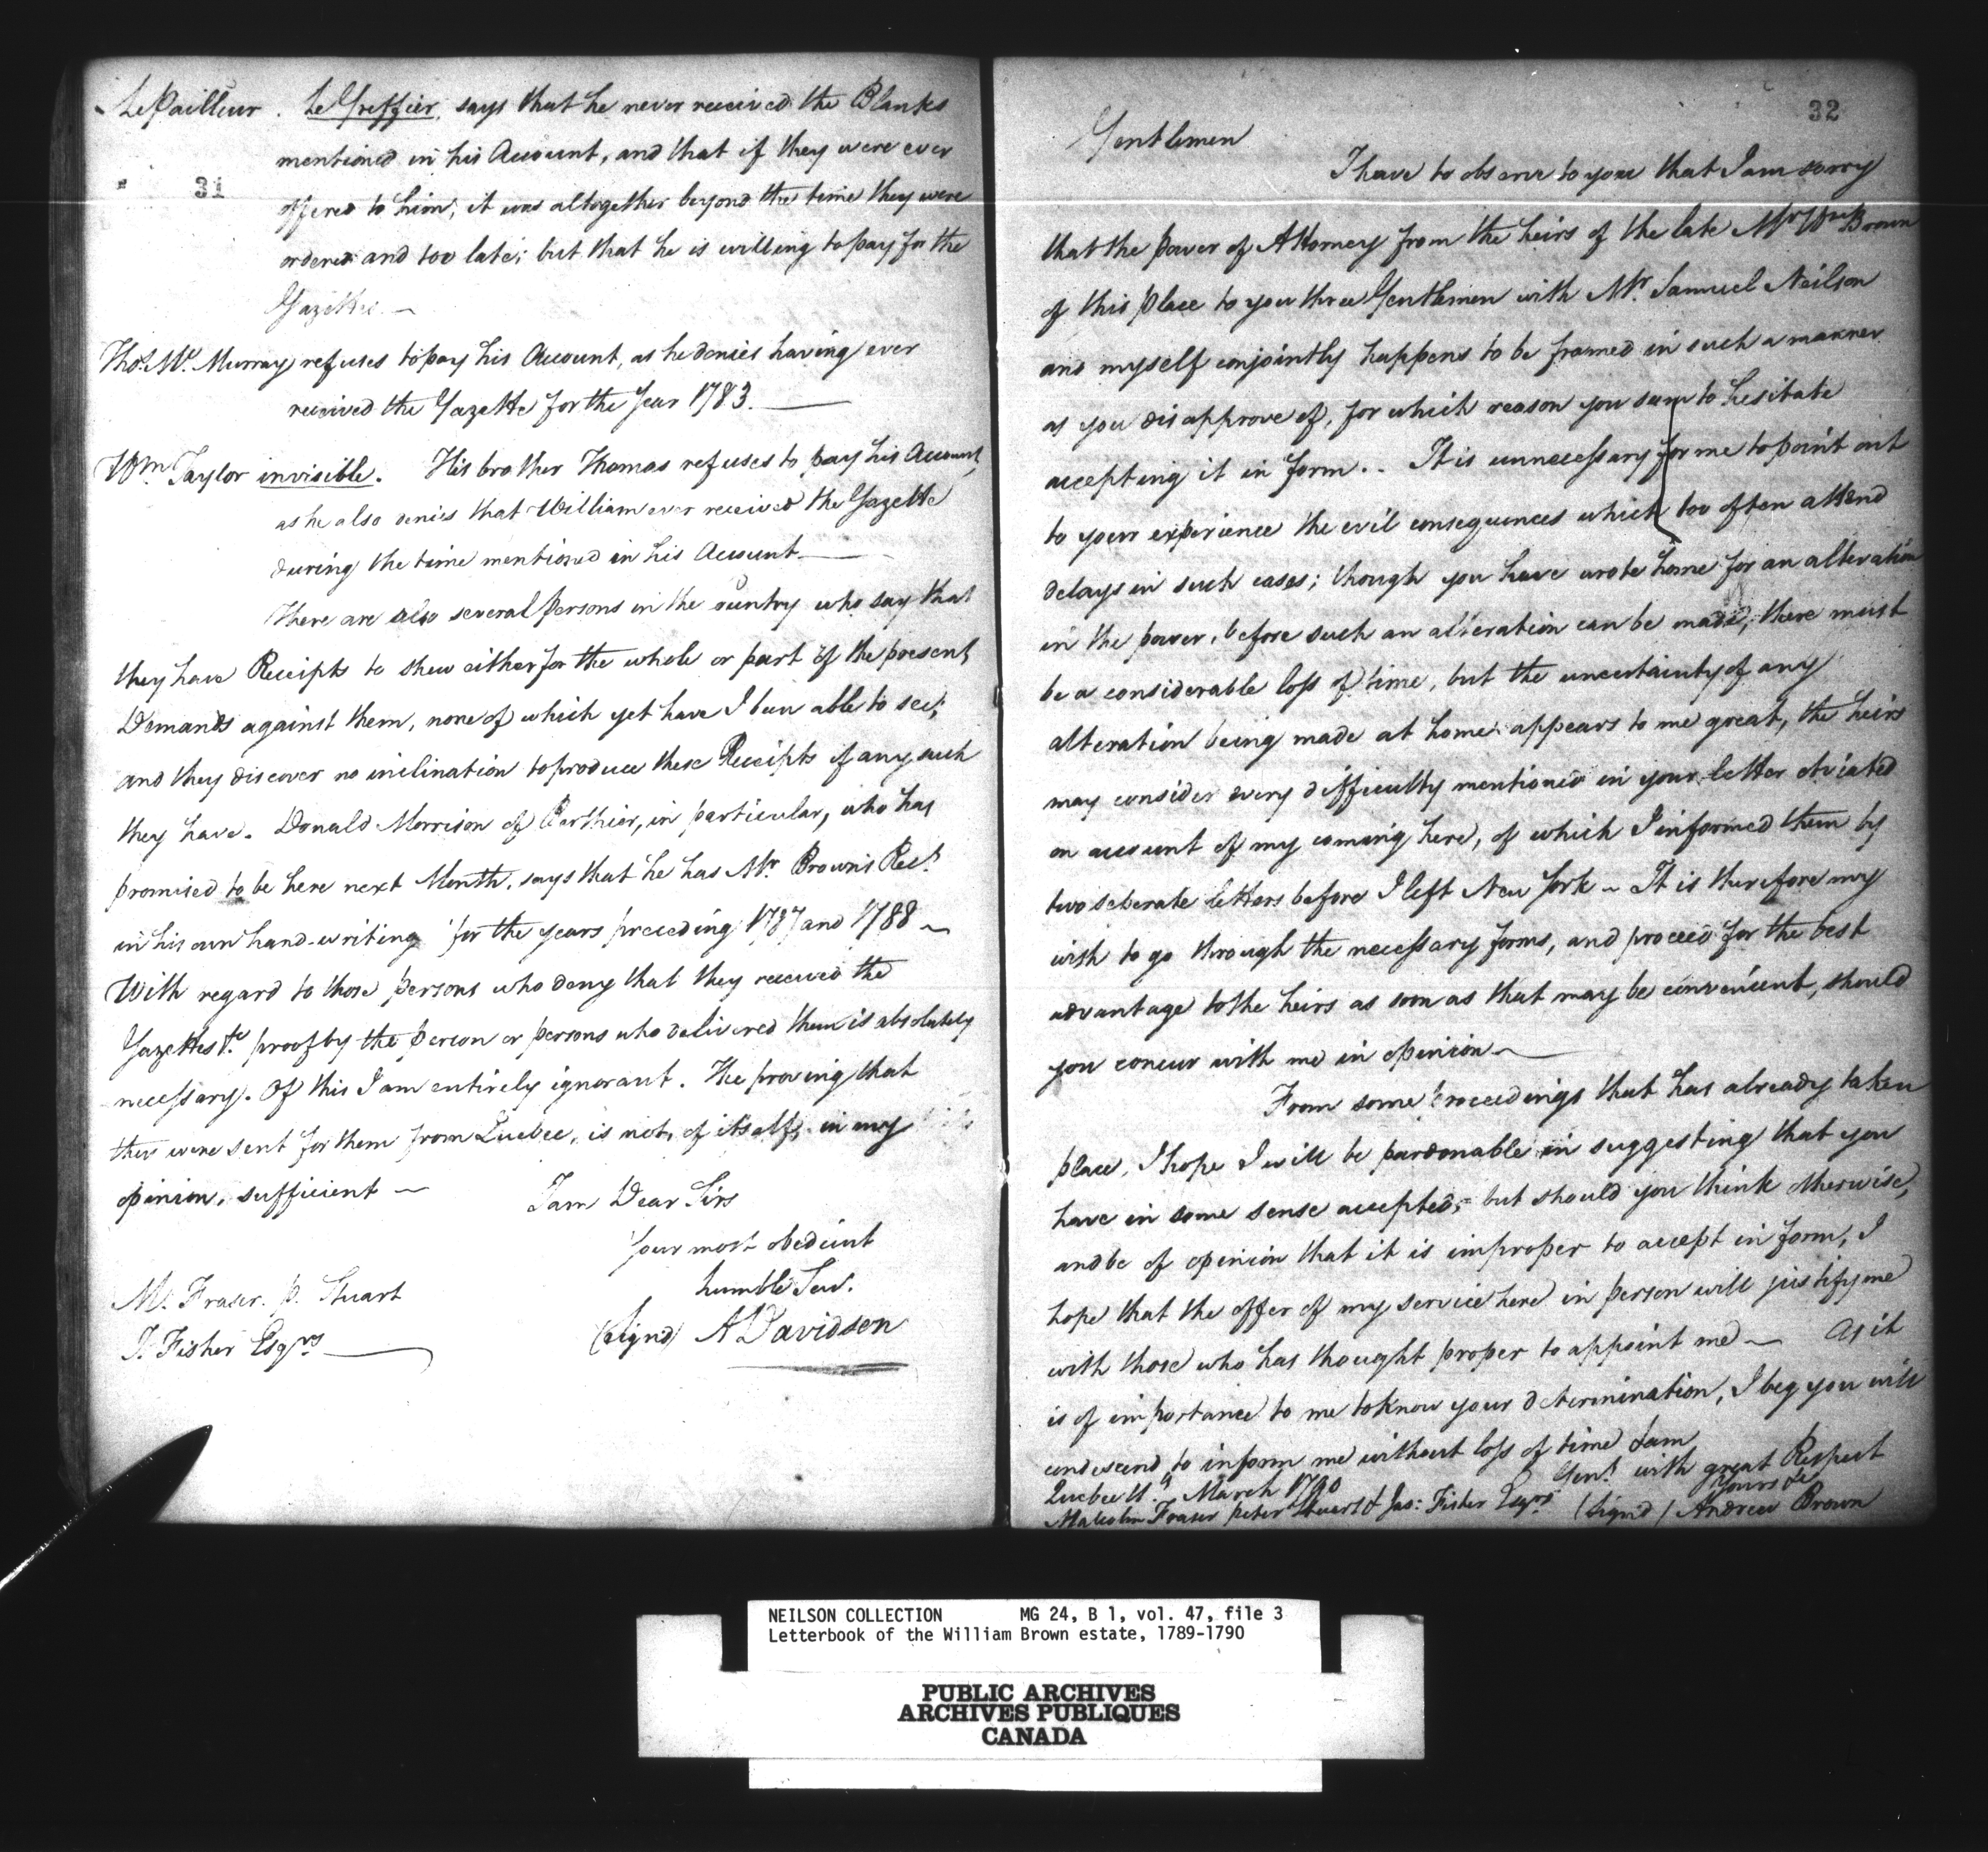 LePailleur. Le Greffier, says that he never received the Blanks
mentioned in his Account, and that if they were ever
31
offered to him, it was altogether beyond the time they were
ordered and too late; but that he is willing to pay for the
Gazette. —
Thos. Mc. Murray refuses to pay his Account, as he denies having ever
received the Gazette for the Year 1783. —
Wm Taylor invisible. His brother Thomas refuses to pay his Account,
as he also denies that William ever received the Gazette
during the time mentioned in his Account —
There are also several persons in the country who say that
they have Receipts to shew either for the whole or part of the present
Demands against them, none of which yet have I been able to see;
and they discover no inclination to produce these Receipts if any such
they have. Donald Morrison of Berthier, in particular, who has
promised to be here next Month, says that he has Mr. Brown's Rect.
in his own hand-writing for the years preceeding 1787 and 1788 —
With regard to those persons who deny that they received the
Gazettes &c. proof by the person or persons who delivered them is absolutely
necessary. Of this I am entirely ignorant. The proving that
they were sent for them from Quebec, is not, of itself, in my
opinion, sufficient —
I am Dear Sirs
Your most obedient
humble Serv.
(Signd) A Davidson
M. Fraser. P. Stuart
J. Fisher Esqrs
32
Gentlemen
I have to observe to you that I am sorry
that the power of Attorney from the heirs of the late Mr Wm Brown
of this place to you three Gentlemen with Mr. Samuel Neilson
and myself conjointly happens to be framed in such a manner
as you disapprove of, for which reason you seem to hesitate
accepting it in form. - It is unnecessary for me to point out
to your experience the evil consequences which too often attend
delays in such cases; though you have wrote home for an alteration
in the power, before such an alteration can be made, there must
be a considerable loss of time, but the uncertainty of any
alteration being made at home appears to me great, the heirs
may consider every difficulty mentioned in your letter obviated
on account of my coming here, of which I informed them by
two seberate letters before I left New York — It is therefore my
wish to go through the necessary forms, and proceed for the best
advantage to the heirs as soon as that may be convenient, should
you concur with me in opinion —
From some proceedings that has already taken
place, I hope I will be pardonable in suggesting that you
have in some sense accepted; but should you think otherwise,
and be of opinion that it is improper to accept in form, I
hope that the offer of my service here in person will justify me
with those who has thought proper to appoint me — As it
is of importance to me to know your determination, I beg you will
condescend to inform me without loss of time I am
Gent. with great Respect
Quebec March 1790
Yours &c
Malcolm Fraser peter Stuart & Jas: Fisher Esqrs (Signd) Andrew Brown
NEILSON COLLECTION MG 24, B 1, vol. 47, file 3
Letterbook of the William Brown estate, 1789-1790
PUBLIC ARCHIVES
ARCHIVES PUBLIQUES
CANADA